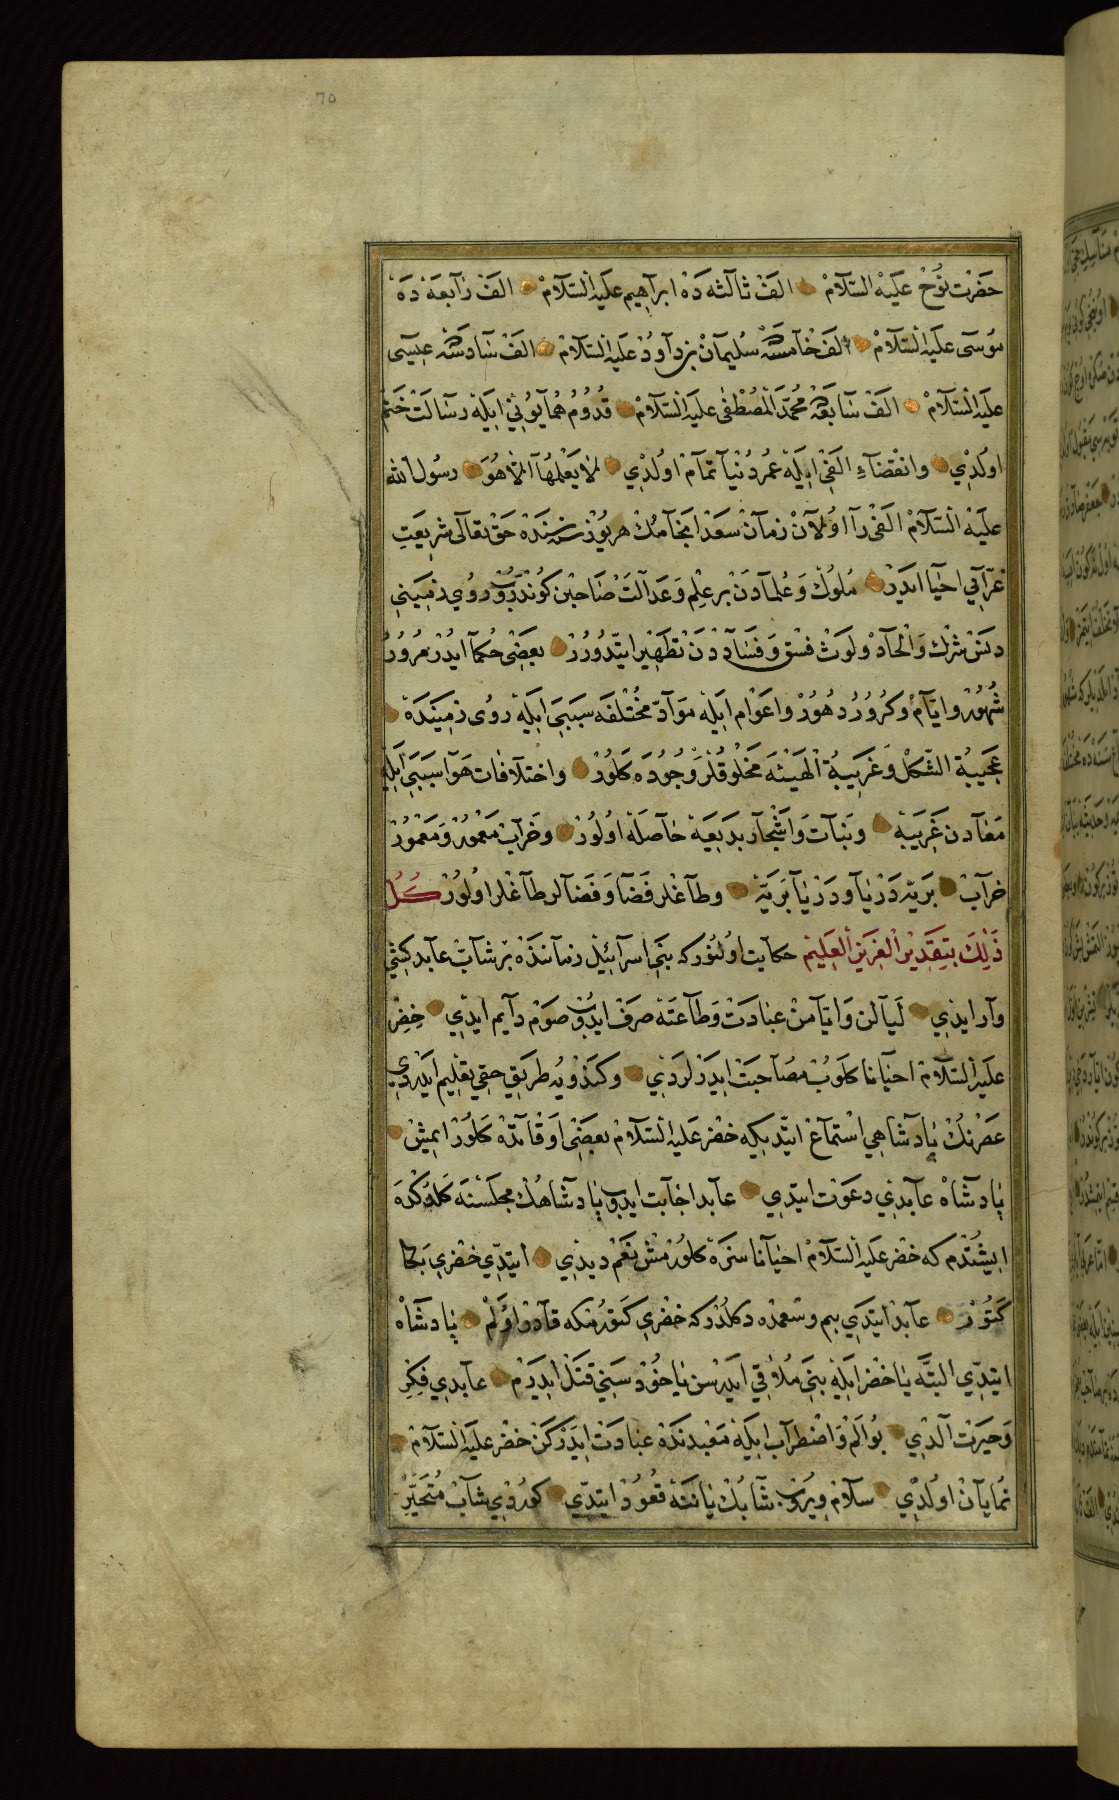 70
حضرت نوح عليه السلام الف ثالثه ده ابراهيم عليه السلام الف رابعه ده
موسى عليه السلام الف خامسه ده سليمان بن داود عليه السلام الف سادسه ده عيسى
عليه السلام الف سابعه ده محمد المصطفى عليه السلام قدوم همايونى ايله رسالت ختم
اولدي وانقضاء الفى ايله عمر دنيا تمام اولدي لا يعلمها الا هو رسول الله
عليه السلام الفى را اولان زمان سعد انجامك هر يوز سنه سنده حق تعالى شريعت
غرايي احيا ايدر ملوك وعلمادن بر علم وعدالت صاحبن كوندروب روي زميني
دنس شرك والحاد ولوث فسق وفساددن تطهير ايتدورر بعضى حكما ايدر مرور
شهور وايام وكرور دهور واعوام ايله مواد مختلفه سببي ايله روى زمينده
عجيبة الشكل وغريبة الهيئه مخلوقلر وجوده كلور واختلافات هوا سببى ايله
معادن غريبه ونبات واشجار بديعه حاصله اولور وخراب معمور ومعمور
خراب بريه دريا ودريا بريه وطاغلر فضا وفضالر طاغلر اولور كل
ذلك بتقدير العزيز العليم حكايت اولنور كه بنى اسرائيل زماننده بر شاب عابد كشي
وار ايدي ليالن وايامن عبادت وطاعته صرف ايدوب صوم دايم ايدي خضر
عليه السلام احيانا كلوب مصاحبت ايدرلردي وكندويه طريق حقي تعليم ايدردي
عصرنك پادشاهي استماع ايتديكه خضر عليه السلام بعضى اوقاتده كلور ايمش
پادشاه عابدي دعوت ايتدي عابد اجابت ايدوب پادشاهك مجلسنه كلدكده
ايشتدم كه خضر عليه السلام احيانا سزه كلورمش نعم ديدي ايتدي خضري بكا
كتور عابد ايتدي بم وسعمده دكلدر كه خضري كتورمكه قادر اولم پادشاه
ايتدي البته يا خضر ايله بنى ملاقي ايدرسن يا خود سني قتل ايدرم عابدي فكر
وحيرت الدي بو الم واضطراب ايله معبدنده عبادت ايدركن خضر عليه السلام
نمايان اولدي سلام ويروب شابك ياننه قعود ايتدي كوردي شاب متحير